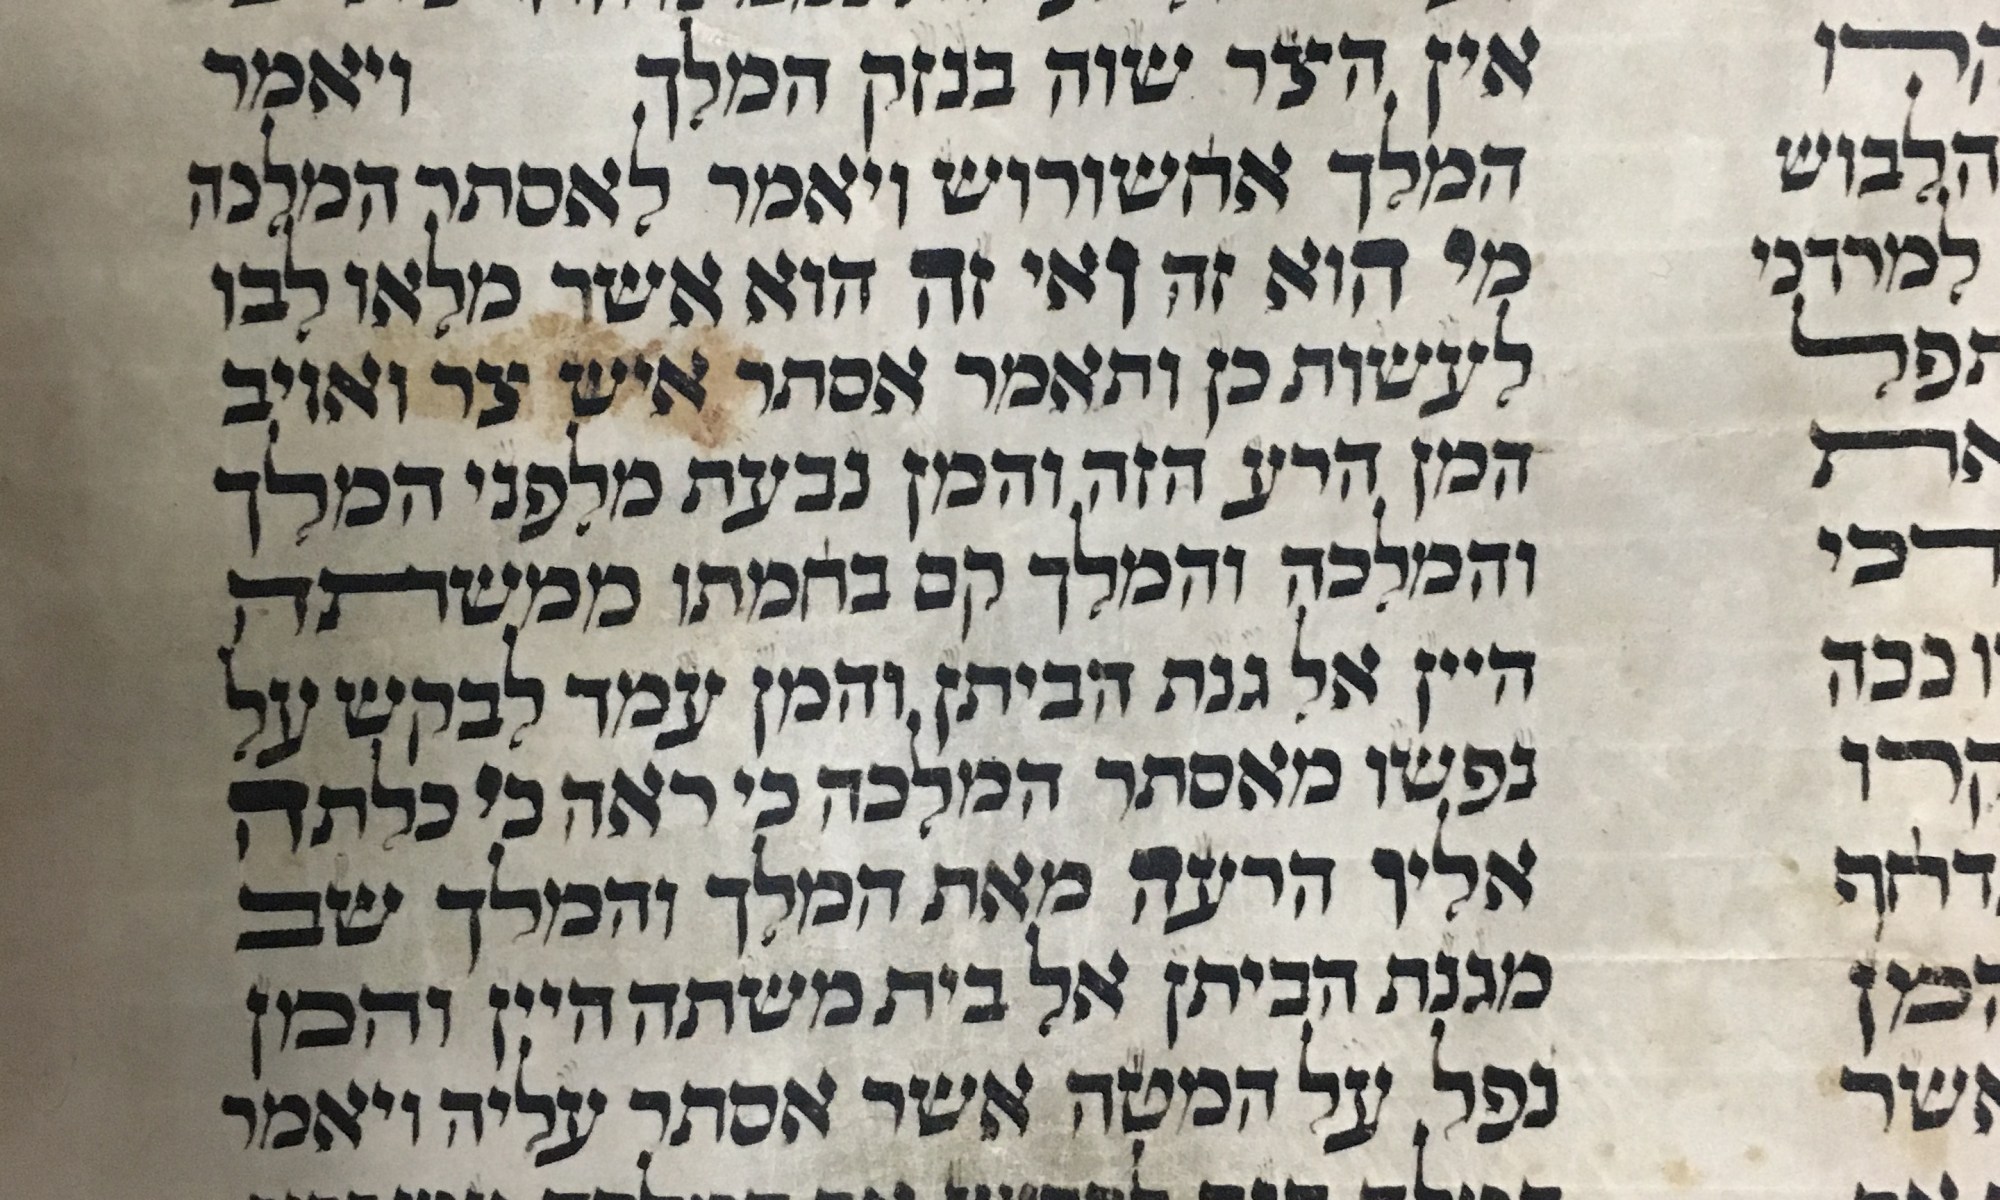 הלבוש
למרדכי
תפל
את
רכי
ככה
המן
אשר
אין הצר שוה בנזק המלך ויאמר
המלך אחשורוש ויאמר לאסתר המלכה
מי הוא זה ואי זה הוא אשר מלאו לבו
לעשות כן ותאמר אסתר איש צר ואויב
המן הרע הזה והמן נבעת מלפני המלך
והמלכה והמלך קם בחמתו ממשתה
היין אל גנת הביתן והמן עמד לבקש על
נפשו מאסתר המלכה כי ראה כי כלתה
אליו הרעה מאת המלך והמלך שב
מגנת הביתן אל בית משתה היין והמן
נפל על המטה אשר אסתר עליה ויאמר